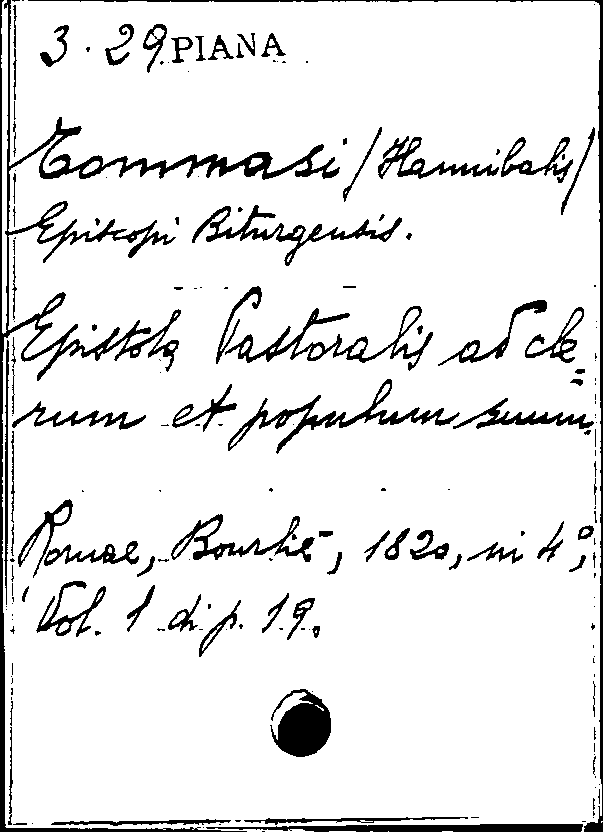 3. 29 PIANA
Tommasi / Hannibalis /
Episcopi Biturgensis.
Epistola Pastoralis ad cle=
rum et populum suum.
Romae, Bourlié, 1820, in 4º,
Vol. 1 di p. 19.